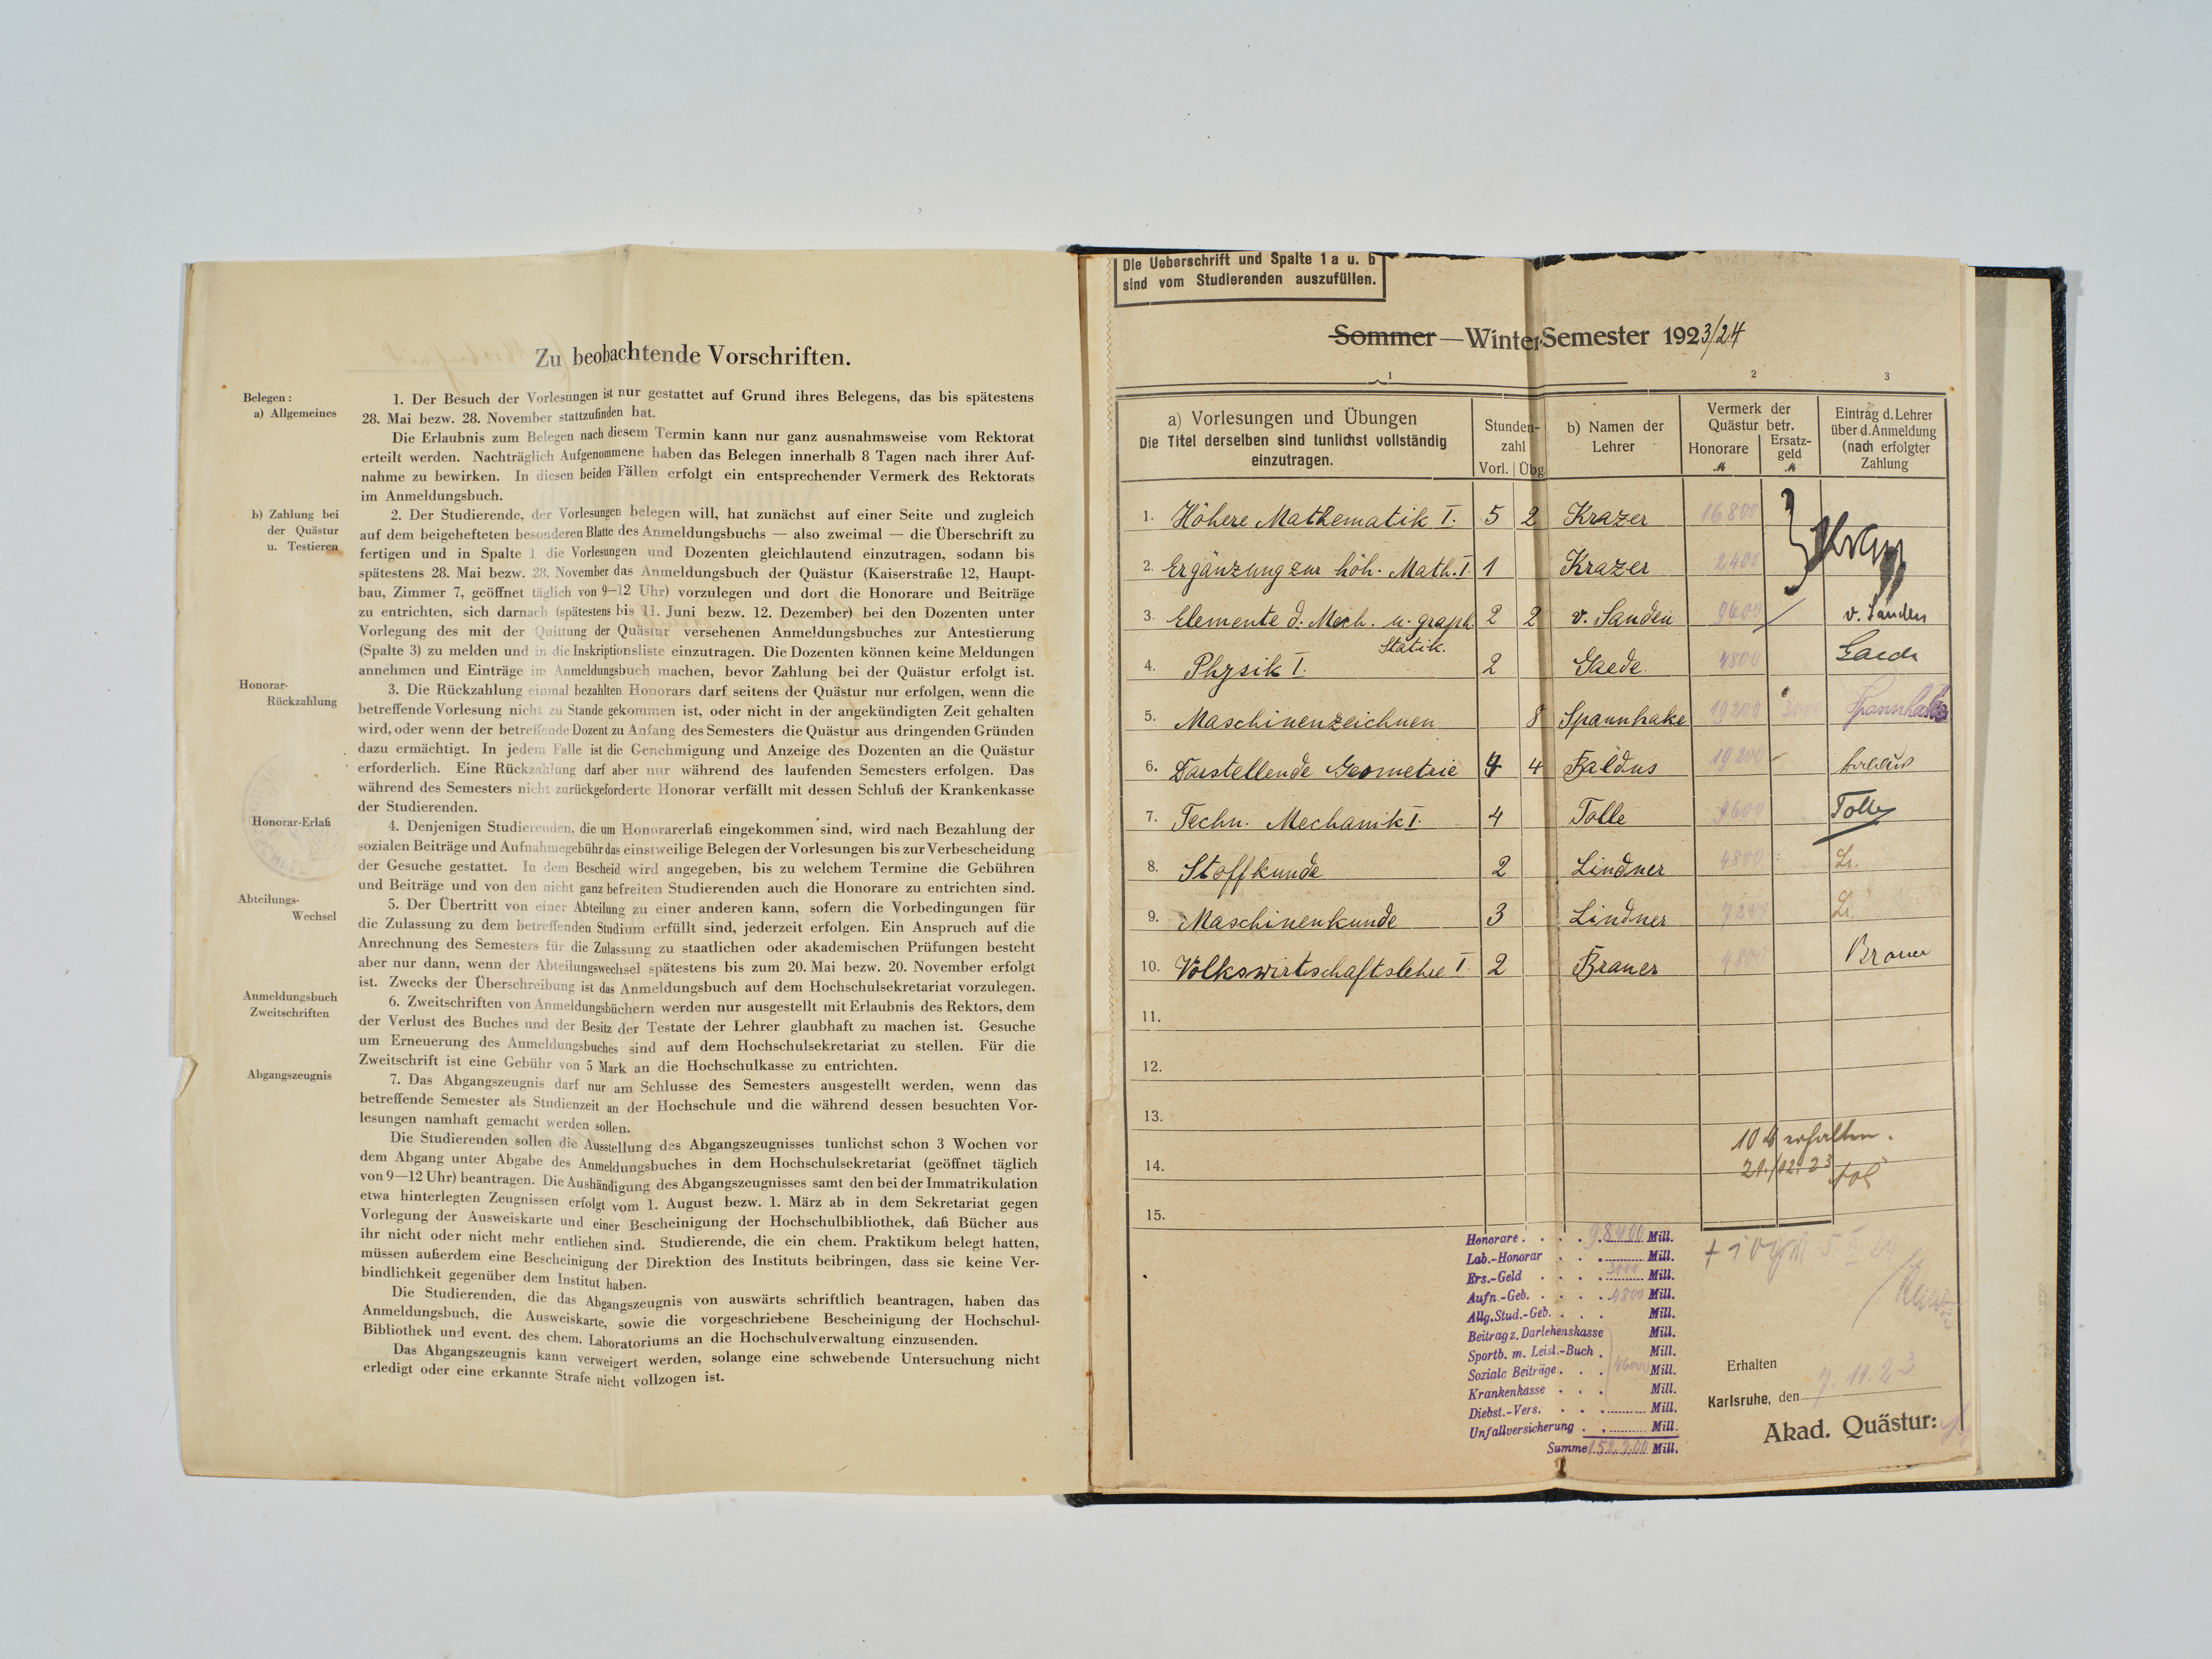 Zu beobachtende Vorschriften.
Belegen:
a) Allgemeines
1. Der Besuch der Vorlesungen ist nur gestattet auf Grund ihres Belegens, das bis spätestens
28. Mai bezw. 28. November stattzufinden hat.
Die Erlaubnis zum Belegen nach diesem Termin kann nur ganz ausnahmsweise vom Rektorat
erteilt werden. Nachträglich Aufgenommene haben das Belegen innerhalb 8 Tagen nach ihrer Auf-
nahme zu bewirken. In diesen beiden Fällen erfolgt ein entsprechender Vermerk des Rektorats
im Anmeldungsbuch.
b) Zahlung bei
der Quästur
u. Testieren
2. Der Studierende, der Vorlesungen belegen will, hat zunächst auf einer Seite und zugleich
auf dem beigehefteten besonderen Blatte des Anmeldungsbuchs — also zweimal — die Überschrift zu
fertigen und in Spalte 1 die Vorlesungen und Dozenten gleichlautend einzutragen, sodann bis
spätestens 28. Mai bezw. 28. November das Anmeldungsbuch der Quästur (Kaiserstraße 12, Haupt-
bau, Zimmer 7, geöffnet täglich von 9—12 Uhr) vorzulegen und dort die Honorare und Beiträge
zu entrichten, sich darnach (spätestens bis 11. Juni bezw. 12. Dezember) bei den Dozenten unter
Vorlegung des mit der Quittung der Quästur versehenen Anmeldungsbuches zur Antestierung
(Spalte 3) zu melden und in die Inskriptionsliste einzutragen. Die Dozenten können keine Meldungen
annehmen und Einträge im Anmeldungsbuch machen, bevor Zahlung bei der Quästur erfolgt ist.
Honorar-
Rückzahlung
3. Die Rückzahlung einmal bezahlten Honorars darf seitens der Quästur nur erfolgen, wenn die
betreffende Vorlesung nicht zu Stande gekommen ist, oder nicht in der angekündigten Zeit gehalten
wird, oder wenn der betreffende Dozent zu Anfang des Semesters die Quästur aus dringenden Gründen
dazu ermächtigt. In jedem Falle ist die Genehmigung und Anzeige des Dozenten an die Quästur
erforderlich. Eine Rückzahlung darf aber nur während des laufenden Semesters erfolgen. Das
während des Semesters nicht zurückgeforderte Honorar verfällt mit dessen Schluß der Krankenkasse
der Studierenden.
Honorar-Erlaß
4. Denjenigen Studierenden, die um Honorarerlaß eingekommen sind, wird nach Bezahlung der
sozialen Beiträge und Aufnahmegebühr das einstweilige Belegen der Vorlesungen bis zur Verbescheidung
der Gesuche gestattet. In dem Bescheid wird angegeben, bis zu welchem Termine die Gebühren
und Beiträge und von den nicht ganz befreiten Studierenden auch die Honorare zu entrichten sind.
Abteilungs-
Wechsel
5. Der Übertritt von einer Abteilung zu einer anderen kann, sofern die Vorbedingungen für
die Zulassung zu dem betreffenden Studium erfüllt sind, jederzeit erfolgen. Ein Anspruch auf die
Anrechnung des Semesters für die Zulassung zu staatlichen oder akademischen Prüfungen besteht
aber nur dann, wenn der Abteilungswechsel spätestens bis zum 20. Mai bezw. 20. November erfolgt
ist. Zwecks der Überschreibung ist das Anmeldungsbuch auf dem Hochschulsekretariat vorzulegen.
Anmeldungsbuch
Zweitschriften
6. Zweitschriften von Anmeldungsbüchern werden nur ausgestellt mit Erlaubnis des Rektors, dem
der Verlust des Buches und der Besitz der Testate der Lehrer glaubhaft zu machen ist. Gesuche
um Erneuerung des Anmeldungsbuches sind auf dem Hochschulsekretariat zu stellen. Für die
Zweitschrift ist eine Gebühr von 5 Mark an die Hochschulkasse zu entrichten.
Abgangszeugnis
7. Das Abgangszeugnis darf nur am Schlusse des Semesters ausgestellt werden, wenn das
betreffende Semester als Studienzeit an der Hochschule und die während dessen besuchten Vor-
lesungen namhaft gemacht werden sollen.
Die Studierenden sollen die Ausstellung des Abgangszeugnisses tunlichst schon 3 Wochen vor
dem Abgang unter Abgabe des Anmeldungsbuches in dem Hochschulsekretariat (geöffnet täglich
von 9—12 Uhr) beantragen. Die Aushändigung des Abgangszeugnisses samt den bei der Immatrikulation
etwa hinterlegten Zeugnissen erfolgt vom 1. August bezw. 1. März ab in dem Sekretariat gegen
Vorlegung der Ausweiskarte und einer Bescheinigung der Hochschulbibliothek, daß Bücher aus
ihr nicht oder nicht mehr entliehen sind. Studierende, die ein chem. Praktikum belegt hatten,
müssen außerdem eine Bescheinigung der Direktion des Instituts beibringen, dass sie keine Ver-
bindlichkeit gegenüber dem Institut haben.
Die Studierenden, die das Abgangszeugnis von auswärts schriftlich beantragen, haben das
Anmeldungsbuch, die Ausweiskarte, sowie die vorgeschriebene Bescheinigung der Hochschul-
Bibliothek und event. des chem. Laboratoriums an die Hochschulverwaltung einzusenden.
Das Abgangszeugnis kann verweigert werden, solange eine schwebende Untersuchung nicht
erledigt oder eine erkannte Strafe nicht vollzogen ist.
Die Ueberschrift und Spalte 1 a u. b
sind vom Studierenden auszufüllen.
Sommer — Winter Semester 1923/24
1 2 3
a) Vorlesungen und Übungen
Die Titel derselben sind tunlichst vollständig
einzutragen.
Stunden-
zahl
Vorl. Übg.
b) Namen der
Lehrer
Vermerk der
Quästur betr.
Honorare
M
Ersatz-
geld
M
Eintrag d. Lehrer
über d. Anmeldung
(nach erfolgter
Zahlung
1. Höhere Mathematik I. 5 2 Krazer 16800
2. Ergänzung zur höh. Math. I. 1 Krazer 2400
3. Elemente d. Mech. u. graph. 2 2 v. Sanden 9600 v. Sanden
Statik.
4. Physik I. 2 Gaede 4800 Gaede
5. Maschinenzeichnen 8 Spannhake 19200 3000 Spannhake
6. Darstellende Geometrie 4 4 Baldus 19200 Baldus
7. Techn. Mechanik I. 4 Tolle 9600 Tolle
8. Stoffkunde 2 Lindner 4800 Li.
9. Maschinenkunde 3 Lindner 7200 Li.
10. Volkswirtschaftslehre I. 2 Brauer 4800 Brauer
11.
12.
13.
14.
15.
10 M erhalten.
21./12. 23
Honorare . . . . 98400 Mill.
Lab.-Honorar . . . Mill.
Ers.-Geld . . . . 3000 Mill.
Aufn.-Geb. . . . . 4800 Mill.
Allg. Stud.-Geb. . . . Mill.
Beitrag z. Darlehenskasse Mill.
Sportb. m. Leist.-Buch . Mill.
Soziale Beiträge . . . Mill.
Krankenkasse . . . Mill.
Diebst.-Vers. . . . Mill.
Unfallversicherung . . Mill.
Summe Mill.
Erhalten
Karlsruhe, den 7. 11. 23
Akad. Quästur: